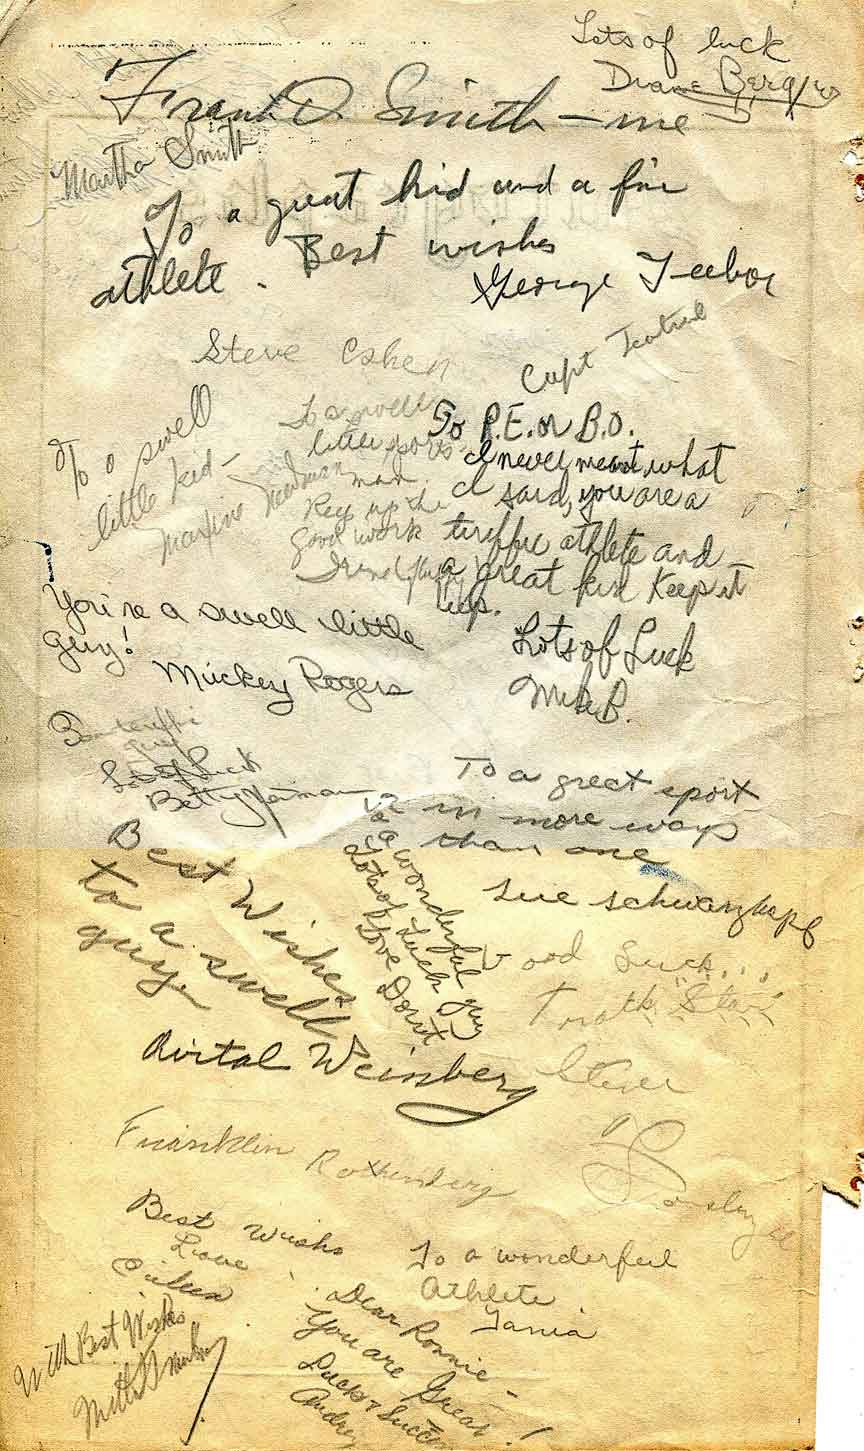 Lots of luck
Diane
Frank D. Smith — me
Martha Smith
To a great kid and a fin
athlete. Best wishes
George
Steve Cohen
Capt
To a swell
little kid —
Maxine
To a swell
little sports
man.
Keep up the
good work
To P.E. or B.O.
I never meant what
I said, you are a
teriffic athlete and
a great kid Keep it
up.
Lots of Luck
Mike B.
You're a swell little
guy!
Mickey Rogers
guy
Lots of Luck
Betty
To a great sport
in more ways
than one
Sue Schwarzkopf
To
a wonderful guy
Lots of Luck
Love Dorit
Best Wishes
to a swell
guy
Avital Weinberg
Good Luck...
Steve
Franklin Rothenberg
Best Wishes
Love
Eileen
To a wonderful
Athlete
Tania
With Best Wishes
Dear Ronnie —
You are Great!
Luck & Success
Audrey